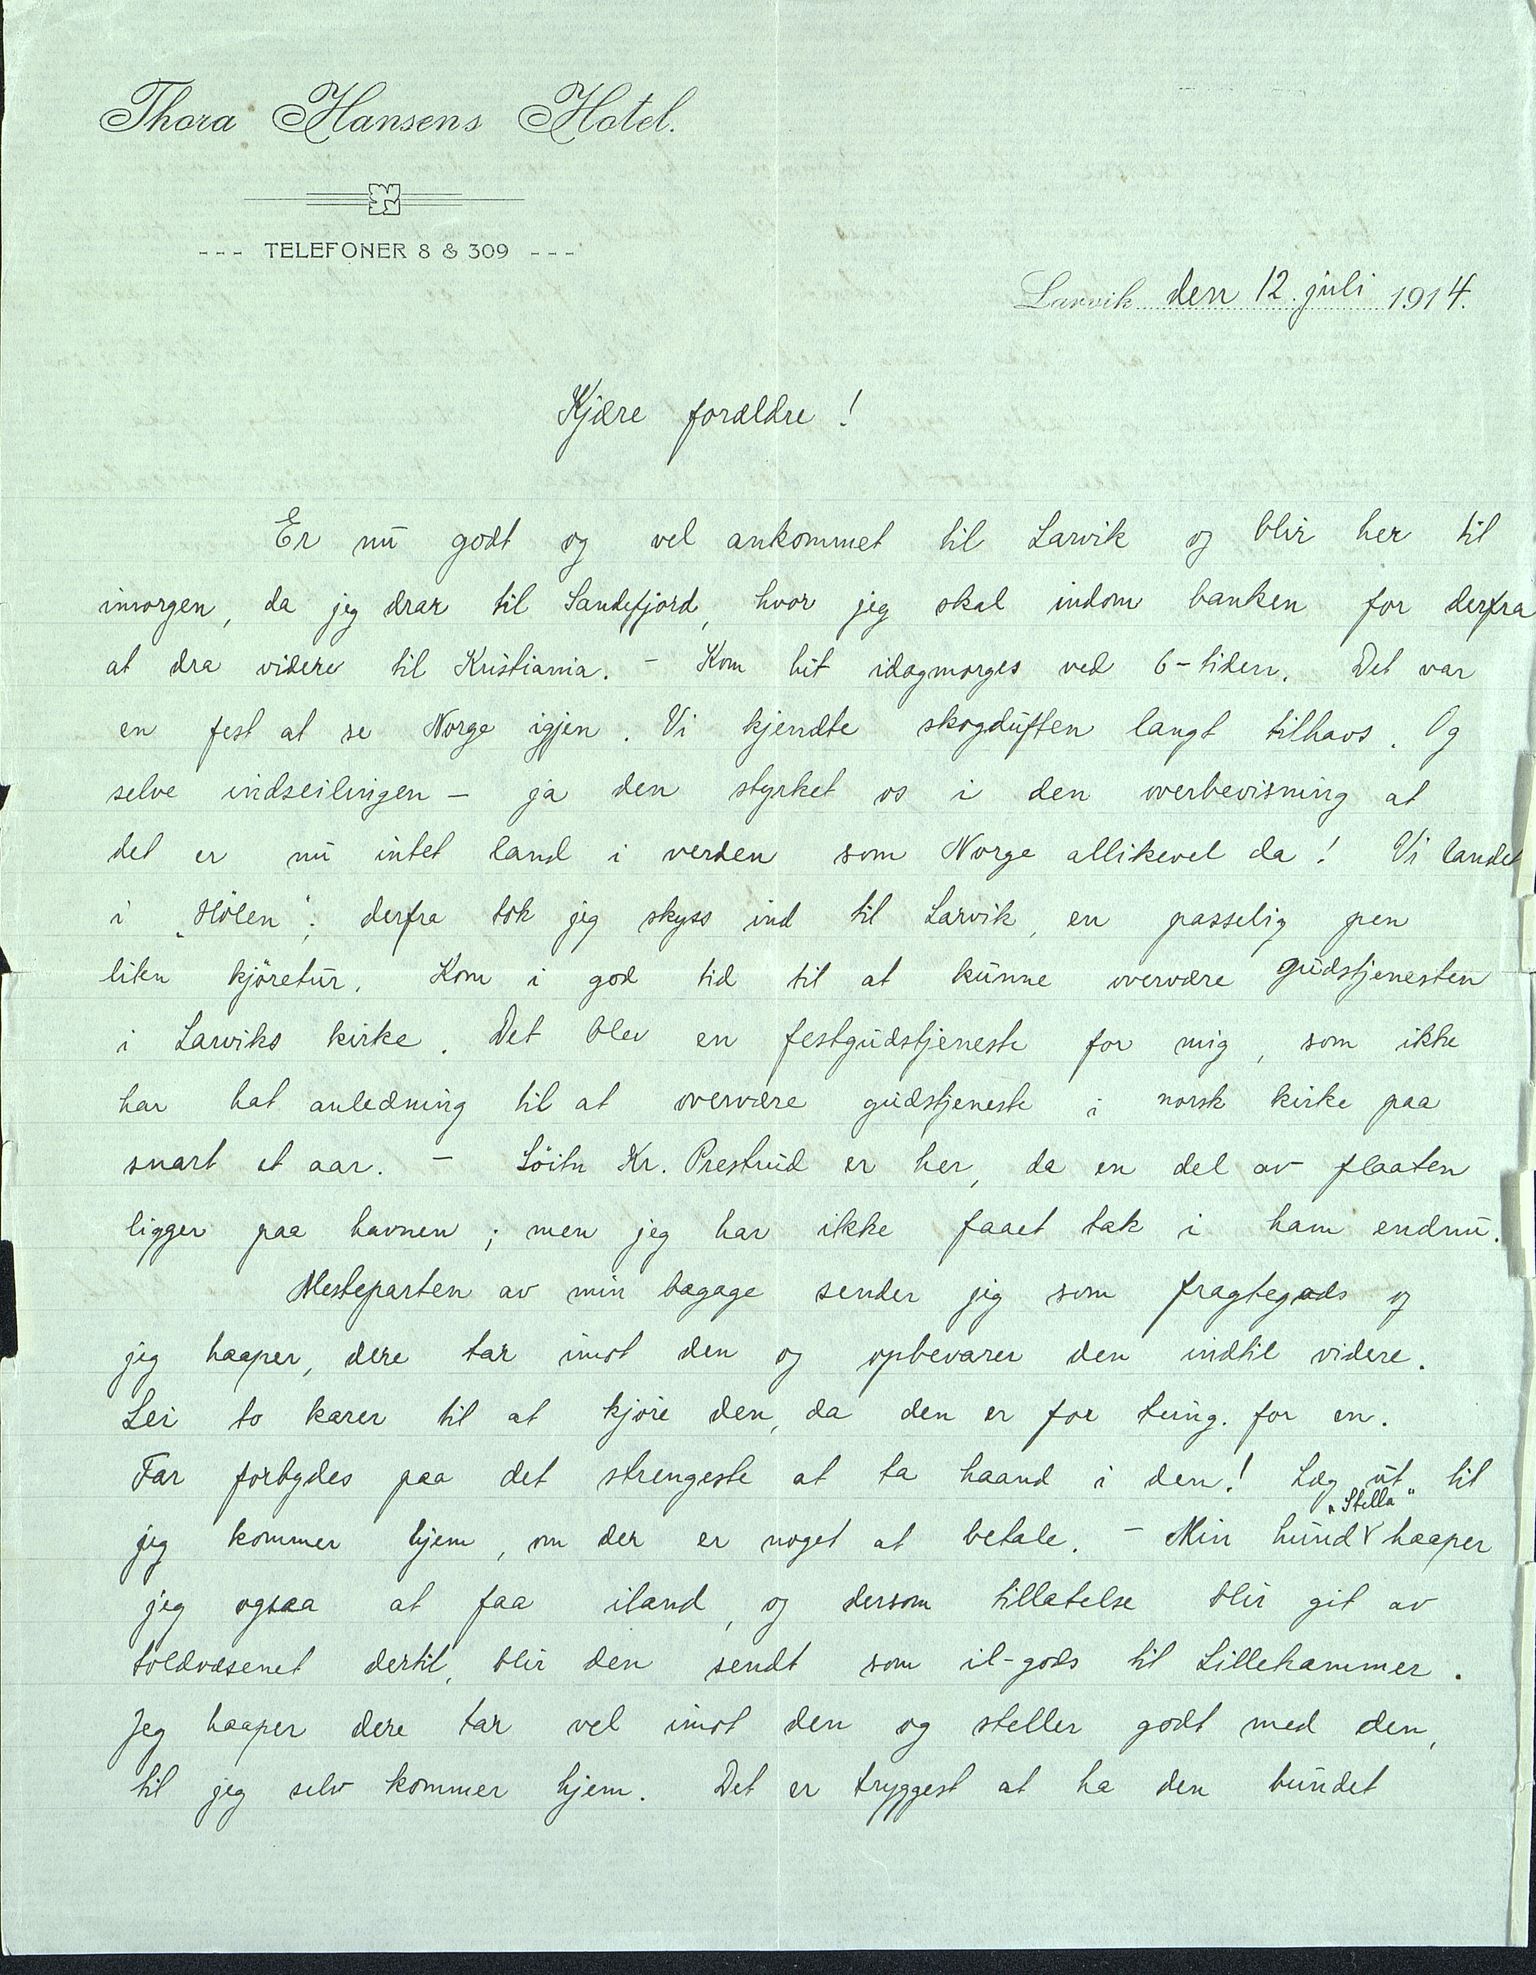 Thora Hansens Hotel.
--- TELEFONER 8 & 309 ---
Larvik den 12. juli 1914.
Kjære forældre!
Er nu godt og vel ankommet til Larvik og blir her til
imorgen, da jeg drar til Sandefjord, hvor jeg skal indom banken for derfra
at dra videre til Kristiania. – Kom hit idagmorges ved 6-tiden. Det var
en fest at se Norge igjen. Vi kjendte skogduften langt tilhavs. Og
selve indseilingen – ja den styrket os i den overbevisning at
det er nu intet land i verden som Norge allikevel da! Vi landet
i „Hölen“; derfra tok jeg skyss ind til Larvik, en passelig pen
liten kjöretur. Kom i god tid til at kunne overvære gudstjenesten
i Larviks kirke. Det blev en festgudstjeneste for mig, som ikke
har hat anledning til at overvære gudstjeneste i norsk kirke paa
snart et aar. – Löitn Kr. Prestrud er her, da en del av flaaten
ligger paa havnen; men jeg har ikke faaet tak i ham endnu.
Mesteparten av min bagage sender jeg som fragtegods og
jeg haaper, dere tar imot den og opbevarer den indtil videre.
Lei to karer til at kjöre den, da den er for tung. for en.
Far forbydes paa det strengeste at ta haand i den! Læg ut til
jeg kommer hjem, om der er noget at betale. – Min hund „Stella“ haaper
jeg ogsaa at faa iland, og dersom tillatelse blir git av
toldvæsenet dertil, blir den sendt som il-gods til Lillehammer.
Jeg haaper dere tar vel imot den og steller godt med den,
til jeg selv kommer hjem. Det er tryggest at ha den bundet